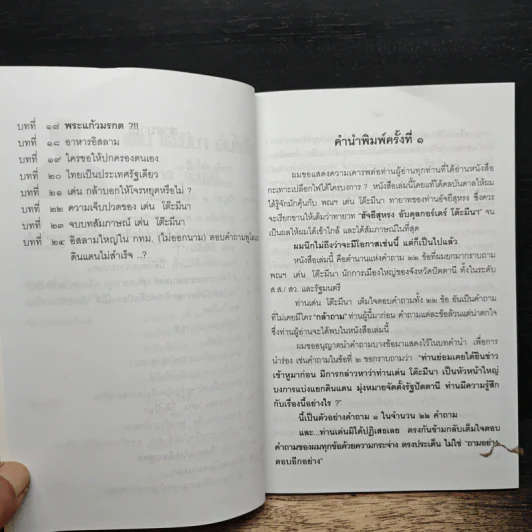 บทที่ ๑๗ พระแก้วมรกต ?!!
บทที่ ๑๘ อาหารอิสลาม
บทที่ ๑๙ ใครขอให้ปกครองตนเอง
บทที่ ๒๐ ไทยเป็นประเทศรัฐเดียว
บทที่ ๒๑ เด่น กล้าบอกให้โจรหยุดหรือไม่ ?
บทที่ ๒๒ ความเจ็บปวดของ เด่น โต๊ะมีนา
บทที่ ๒๓ จบบทสัมภาษณ์ เด่น โต๊ะมีนา
บทที่ ๒๔ อิสลามใหญ่ใน กทม. (ไม่ออกนาม) ตอบคำถามพูโล
ดินแดนไม่สำเร็จ ..?
คำนำพิมพ์ครั้งที่ ๑
ผมขอแสดงความเคารพต่อท่านผู้อ่านทุกท่านที่ได้อ่านหนังสือ
กะเทาะเปลือกไฟใต้ใครบงการ ? หนังสือเล่มนี้โดยแท้ได้ดลบันดาลให้ผม
ได้รู้จักมักคุ้นกับ พณฯ เด่น โต๊ะมีนา ทายาทของท่านฮัจยีสุหรง ซึ่งควร
จะเรียกขานให้เต็มว่าทายาท "ฮัจยีสุหรง อับดุลกอร์เดร์ โต๊ะมีนา" จน
เป็นผลให้ผมได้เข้าใกล้ และได้สัมภาษณ์ในที่สุด
ผมนึกไม่ถึงว่าจะมีโอกาสเช่นนี้ แต่ก็เป็นไปแล้ว
หนังสือเล่มนี้ คือตำนานแห่งคำถาม ๒๒ ข้อที่ผมยกมากราบถาม
พณฯ เด่น โต๊ะมีนา นักการเมืองใหญ่ของจังหวัดปัตตานี ทั้งในระดับ
ส.ส./ สว. และรัฐมนตรี
ท่านเด่น โต๊ะมีนา เต็มใจตอบคำถามทั้ง ๒๒ ข้อ อันเป็นคำถาม
ที่ไม่เคยมีใคร "กล้าถาม" ท่านผู้นี้มาก่อน คำถามแต่ละข้อล้วนแต่น่าตกใจ
ซึ่งผู้อ่านจะได้พบในหนังสือเล่มนี้
ผมขออนุญาตนำคำถามบางข้อมาแสดงไว้ในบทคำนำ เพื่อการ
นำร่อง เช่นคำถามในข้อที่ ๒ ขอกราบถามว่า "ท่านย่อมเคยได้ยินข่าว
เข้าหูมาก่อน มีการกล่าวหาว่าท่านเด่น โต๊ะมีนา เป็นหัวหน้าใหญ่
บงการแบ่งแยกดินแดน มุ่งหมายจัดตั้งรัฐปัตตานี ท่านมีความรู้สึก
กับเรื่องนี้อย่างไร ?"
นี้เป็นตัวอย่างคำถาม ๑ ในจำนวน ๒๒ คำถาม
และ...ท่านเด่นมิได้ปฏิเสธเลย ตรงกันข้ามกลับเต็มใจตอบ
คำถามของผมทุกข้อด้วยความกระจ่าง ตรงประเด็น ไม่ใช่ "ถามอย่าง
ตอบอีกอย่าง"